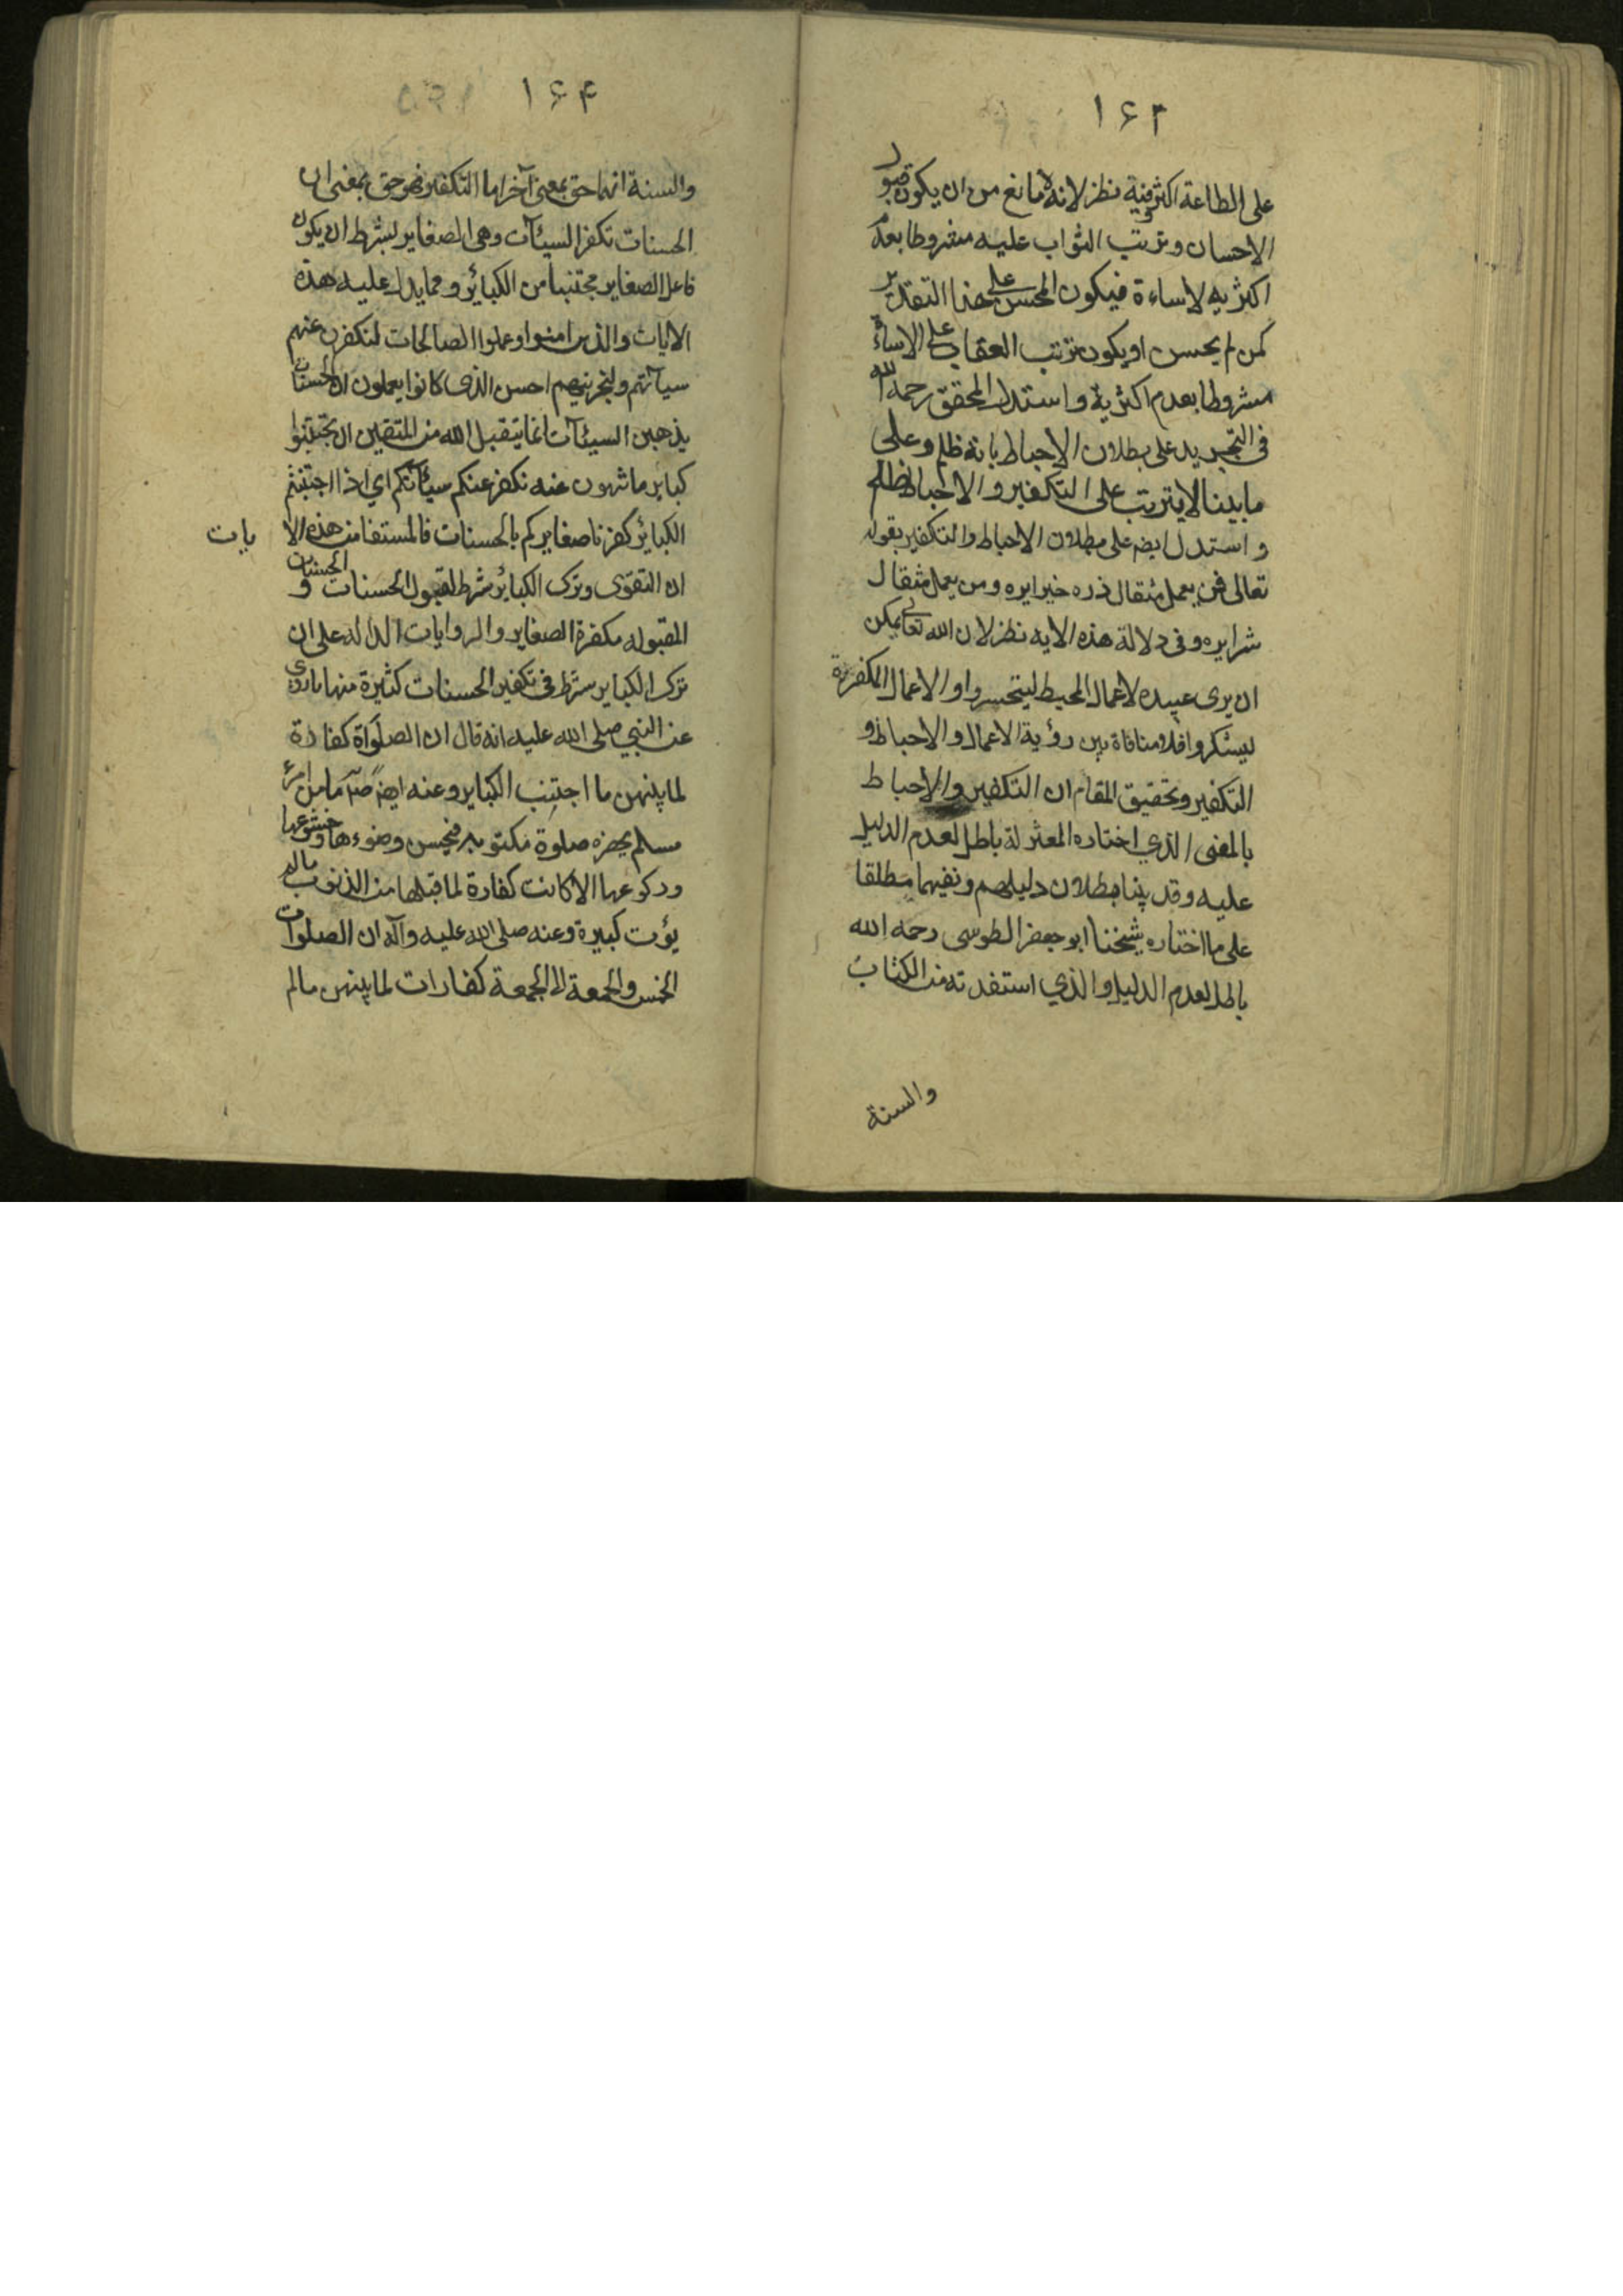 ۱۶۳
على الطاعة اكثر فيه نظر لانه لا مانع من ان يكون قبول
الاحسان وترتب الثواب عليه مشروطا بعدم
اكثريه لاساءة فيكون المحسن على هذا التقدير
كمن لم يحسن او يكون ترتب العقاب على الاساءة
مشروطا بعدم اكثرية واستدل المحقق رحمه الله
فى التجريد على بطلان الاحباط بانه ظلم وعلى
ما بينا لا يترتب على التكفير والاحباط ظلم
واستدل ايضه على بطلان الاحباط والتكفير بقوله
تعالى فمن يعمل مثقال ذره خيرا يره ومن يعمل مثقال
شرا يره وفى دلالة هذه الايه نظر لان الله تعالى يمكن
ان يرى عبيده لاعمال المحبط ليتحسروا والاعمال المكفرة
ليشكروا فلا منافاة بين رؤية الاعمال والاحباط و
التكفير وتحقيق المقام ان التكفير والاحباط
بالمعنى الذي اختاره المعتزلة باطل لعدم الدليل
عليه وقد بينا بطلان دليلهم ونفيهما مطلقا
على ما اختاره شيخنا ابو جعفر الطوسى رحمه الله
باطل لعدم الدليل والذي استفدته من الكتاب
والسنة
۱۶۴
والسنة انهما حق بمعنى آخر اما التكفير فهو حق بمعنى ان
الحسنات تكفر السيئات وهى الصغاير بشرط ان يكون
فاعل الصغاير مجتنبا من الكبائر ومما يدل عليه هذه
الايات والذين امنوا وعملوا الصالحات لنكفرن عنهم
سيآتهم ولنجزينهم احسن الذى كانوا يعملون ان الحسنات
يذهبن السيئات انما يتقبل الله من المتقين ان تجتنبوا
كباير ما تنهون عنه نكفر عنكم سيئاتكم اي اذا اجتنبتم
الكبائر كفرنا صغايركم بالحسنات فالمستفا من هذه الا يات
ان التقوى وترك الكبائر شرط لقبول الحسنات و الحسنات
المقبوله مكفرة الصغاير والروايات الداله على ان
ترك الكباير شرط فى تكفير الحسنات كثيرة منها ما روى
عن النبي صلى الله عليه انه قال ان الصلواة كفارة
لما بينهن ما اجتنب الكباير وعنه ايضه ص ما من امرئ
مسلم يحضره صلوة مكتوبه فيحسن وضوءها وخشوعها
وركوعها الا كانت كفارة لما قبلها من الذنوب ما لم
يؤت كبيرة وعنه صلى الله عليه وآله ان الصلوات
الخمس والجمعة لا الجمعة كفارات لما بينهن مالم